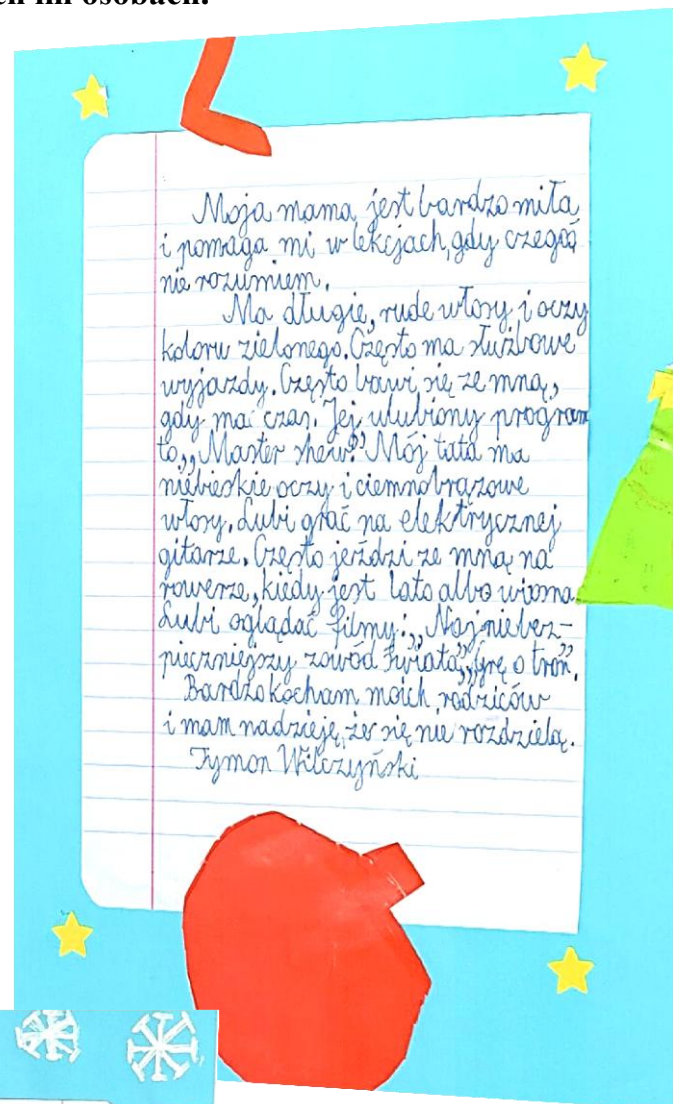 ch im osobach.
Moja mama jest bardzo miła
i pomaga mi w lekcjach, gdy czegoś
nie rozumiem.
Ma długie, rude włosy i oczy
koloru zielonego. Często ma służbowe
wyjazdy. Często bawi się ze mną,
gdy ma czas. Jej ulubiony program
to,, Master shew." Mój tata ma
niebieskie oczy i ciemnobrązowe
włosy. Lubi grać na elektrycznej
gitarze. Często jeździ ze mną na
rowerze, kiedy jest lato albo wiosna.
Lubi oglądać filmy:,, Najniebez-
pieczniejszy zawód świata",,Grę o tron".
Bardzo kocham moich rodziców
i mam nadzieję, że się nie rozdzielą.
Tymon Wilczyński